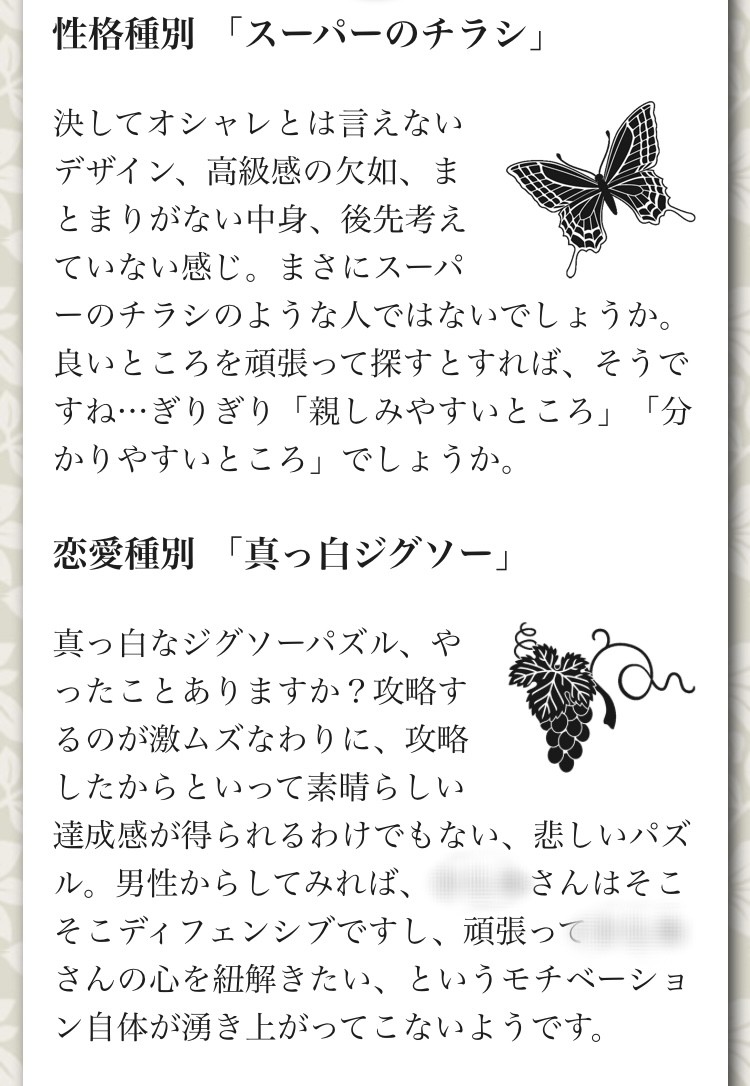 性格種別 「スーパーのチラシ」
決してオシャレとは言えない
デザイン、高級感の欠如、ま
とまりがない中身、後先考え
ていない感じ。まさにスーパ
ーのチラシのような人ではないでしょうか。
良いところを頑張って探すとすれば、そうで
すね…ぎりぎり「親しみやすいところ」「分
かりやすいところ」でしょうか。
恋愛種別 「真っ白ジグソー」
真っ白なジグソーパズル、や
ったことありますか？攻略す
るのが激ムズなわりに、攻略
したからといって素晴らしい
達成感が得られるわけでもない、悲しいパズ
ル。男性からしてみれば、さんはそこ
そこディフェンシブですし、頑張って
さんの心を紐解きたい、というモチベーショ
ン自体が湧き上がってこないようです。